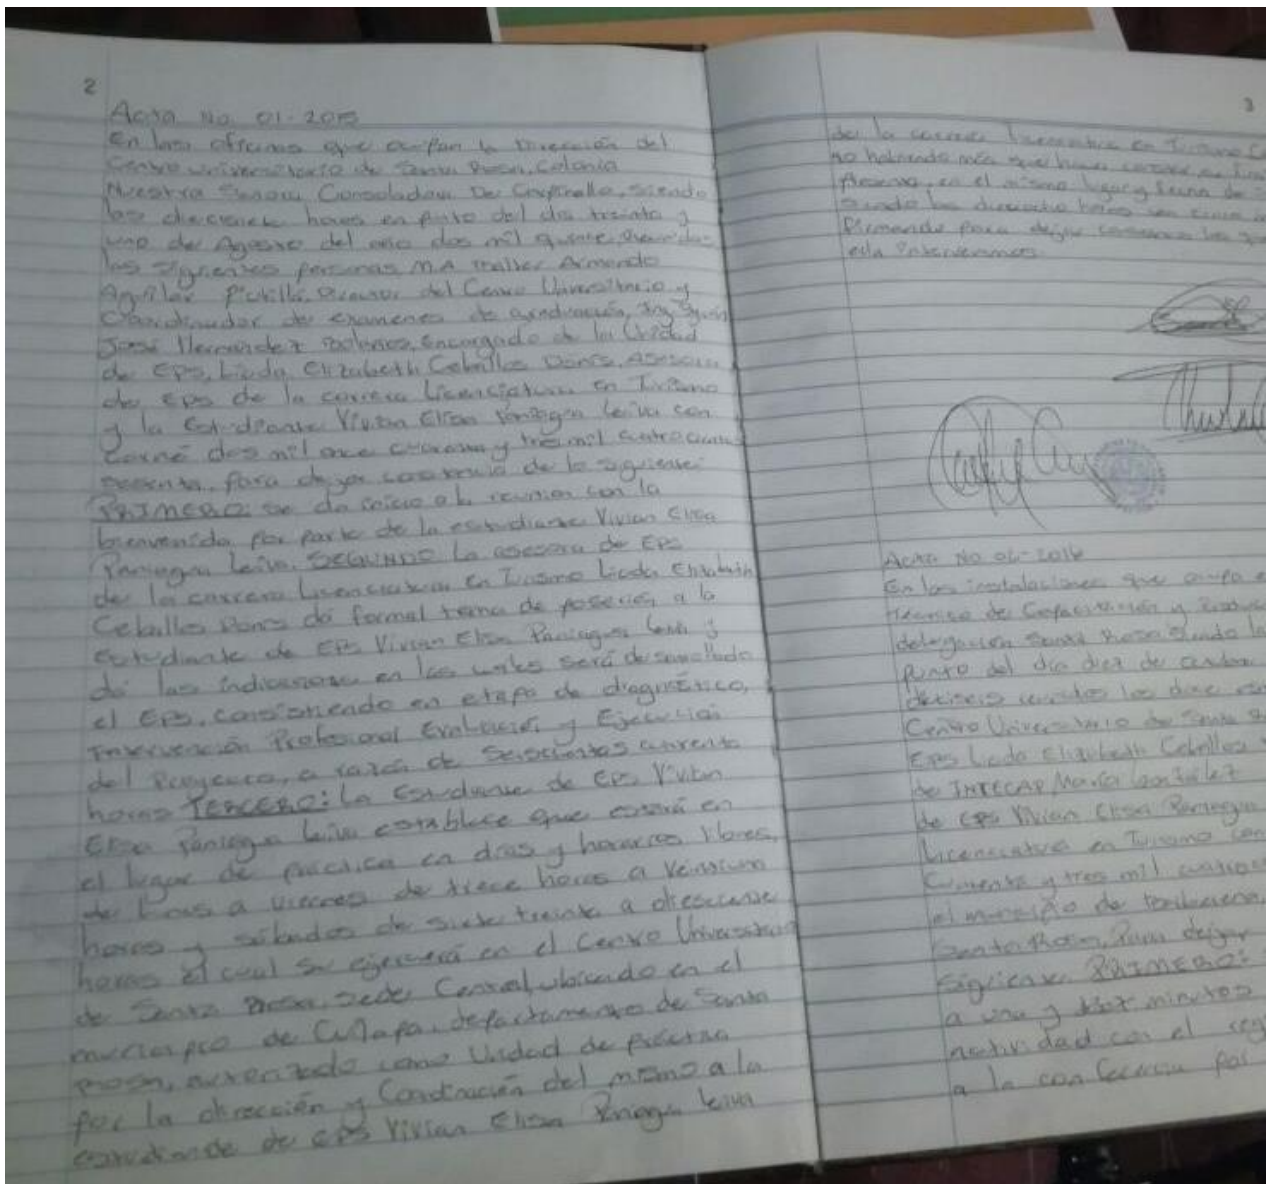 2
Acta No. 01-2015
En las oficinas que ocupan la Dirección del
Centro Universitario de Santa Rosa, Colonia
Nuestra Señora Consoladora De Carpinello, siendo
las diecisiete horas en punto del día treinta y
uno de Agosto del año dos mil quince, reunidos
las siguientes personas M.A Walter Armando
Aguilar Director del Centro Universitario y
Coordinador de examenes de graduación, Ing.
José Hernandez Bolaños, encargado de la Unidad
de EPS, Licda. Elizabeth Ceballos Donis, Asesora
de EPS de la carrera Licenciatura en Turismo
y la Estudiante Vivian Elisa Paniagua Leiva con
Carné dos mil once cuarenta y tres mil
sesenta, para dejar constancia de lo siguiente:
PRIMERO: se da inicio a la reunión con la
bienvenida por parte de la estudiante Vivian Elisa
Paniagua Leiva. SEGUNDO La asesora de EPS
de la carrera Licenciatura en Turismo Licda Elizabeth
Ceballos Donis da formal toma de posesión a la
Estudiante de EPS Vivian Elisa Paniagua Leiva y
da las indicaciones en las cuales será desarrollado
el EPS, consistiendo en etapa de diagnóstico,
Intervención Profesional Evaluación y Ejecución
del Proyecto, a razón de Seiscientas cuarenta
horas TERCERO: La Estudiante de EPS Vivian
Elisa Paniagua Leiva establece que estará en
el lugar de práctica en días y horarios libres,
de Lunes a viernes de trece horas a veintiuna
horas y sábados de siete treinta a diecisiete
horas el cual se ejercerá en el Centro Universitario
de Santa Rosa, Sede Central, ubicado en el
municipio de Cuilapa, departamento de Santa
Rosa, autorizado como Unidad de práctica
por la dirección y Coordinación del mismo a la
estudiante de EPS Vivian Elisa Paniagua Leiva
3
de la carrera Licenciatura en Turismo
no habiendo más que hacer constar se
Presente, en el mismo lugar y fecha de
siendo las dieciocho horas con
Firmando para dejar constancia los que
ella Intervenimos.
Acta No 02-2016
En las instalaciones que ocupa
técnico de Capacitación y
delegación Santa Rosa siendo
punto del día diez de
dieciseis reunidos los
Centro Universitario de Santa
EPS Licda Elizabeth Ceballos
de INTECAP María González
de EPS Vivian Elisa Paniagua
Licenciatura en Turismo con
Cuarenta y tres mil
el municipio de
Santa Rosa, Para dejar
Siguiente PRIMERO:
a una y diez minutos
actividad con el
a la conferencia por